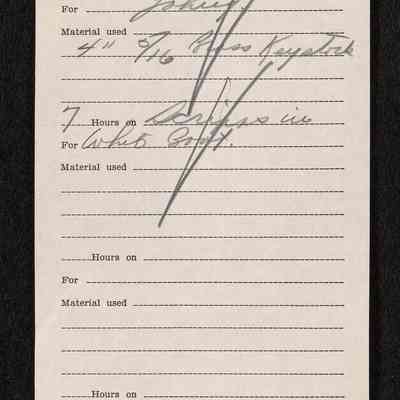 For
Material used
4" 5/16 Brass Keystock
7 Hours on Scripps in
For Whit Govt.
Material used
Hours on
For
Material used
Hours on